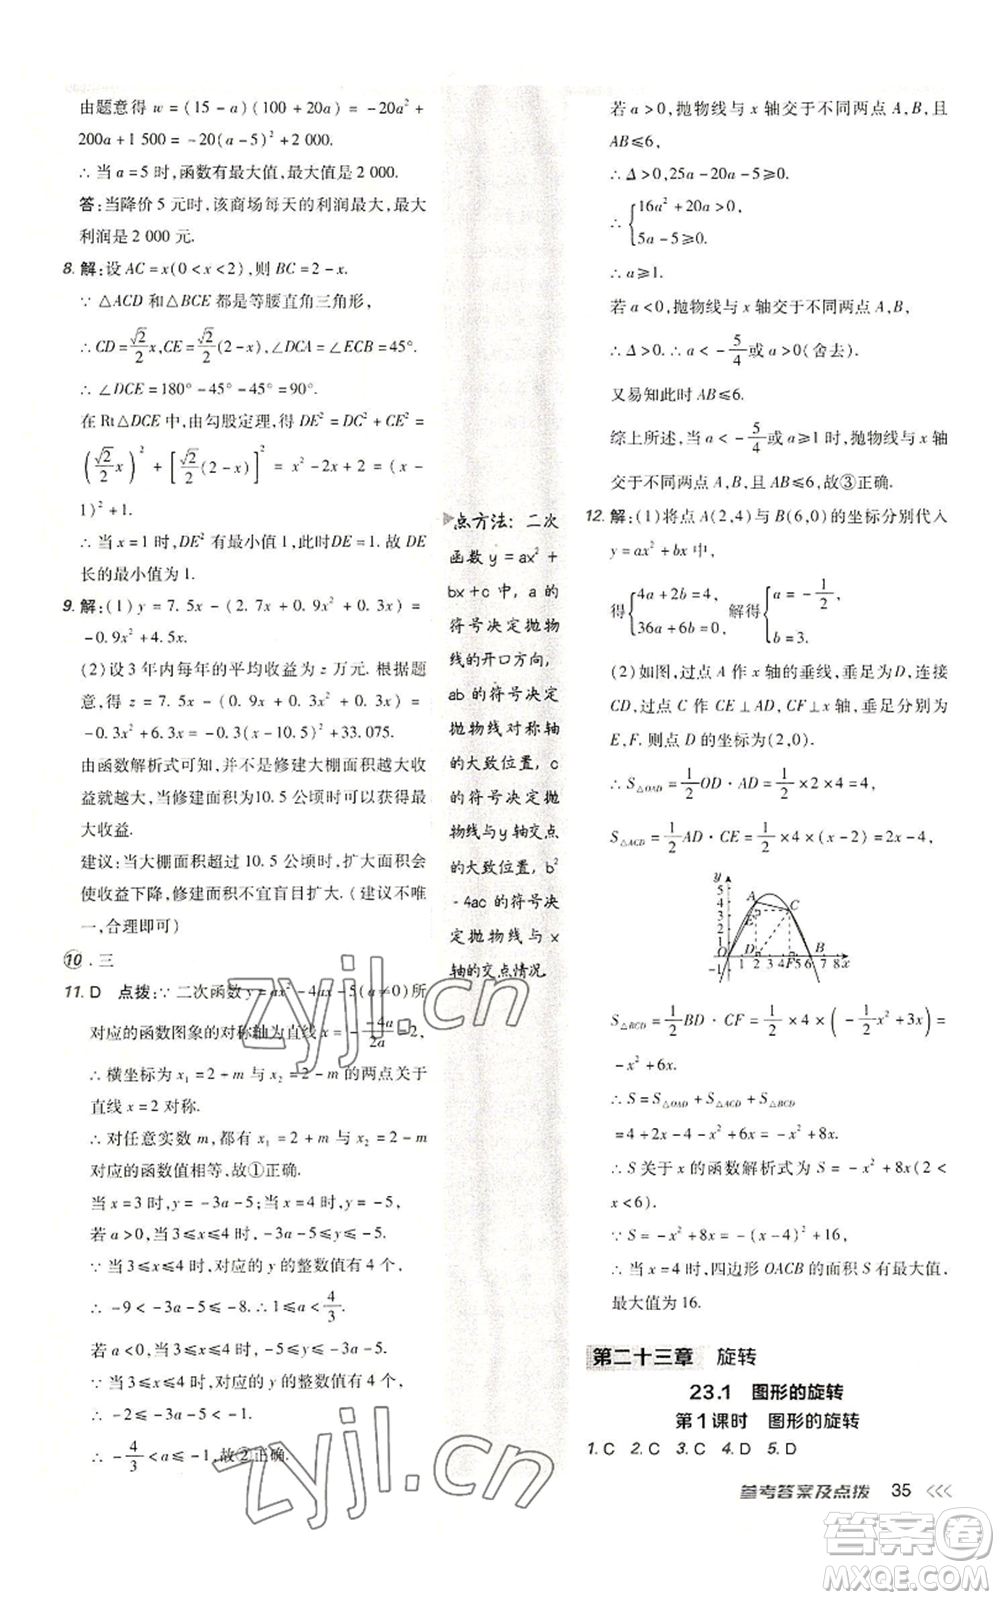 由题意得 w = (15 - a)(100 + 20a) = -20a² +
200a + 1 500 = -20(a - 5)² + 2 000.
∴ 当 a = 5 时,函数有最大值,最大值是 2 000.
答:当降价 5 元时,该商场每天的利润最大,最大
利润是 2 000 元.
8. 解:设 AC = x(0 < x < 2),则 BC = 2 - x.
∵ △ACD 和 △BCE 都是等腰直角三角形,
∴ CD = √2/2 x, CE = √2/2 (2 - x), ∠DCA = ∠ECB = 45°.
∴ ∠DCE = 180° - 45° - 45° = 90°.
在 Rt△DCE 中,由勾股定理,得 DE² = DC² + CE² =
(√2/2 x)² + [√2/2 (2 - x)]² = x² - 2x + 2 = (x -
1)² + 1.
∴ 当 x = 1 时, DE² 有最小值 1,此时 DE = 1. 故 DE
长的最小值为 1.
9. 解:(1) y = 7.5x - (2.7x + 0.9x² + 0.3x) =
-0.9x² + 4.5x.
(2)设 3 年内每年的平均收益为 z 万元. 根据题
意,得 z = 7.5x - (0.9x + 0.3x² + 0.3x) =
-0.3x² + 6.3x = -0.3(x - 10.5)² + 33.075.
由函数解析式可知,并不是修建大棚面积越大收
益就越大,当修建面积为10.5 公顷时可以获得最
大收益.
建议:当大棚面积超过 10.5 公顷时,扩大面积会
使收益下降,修建面积不宜盲目扩大.(建议不唯
一,合理即可)
10. 三
11. D 点拨:∵ 二次函数 y = ax² - 4ax - 5(a ≠ 0)所
对应的函数图象的对称轴为直线 x = - -4a/2a = 2,
∴ 横坐标为 x₁ = 2 + m 与 x₂ = 2 - m 的两点关于
直线 x = 2 对称.
∴ 对任意实数 m,都有 x₁ = 2 + m 与 x₂ = 2 - m
对应的函数值相等,故①正确.
当 x = 3 时, y = -3a - 5;当 x = 4 时, y = -5,
若 a > 0,当 3 ≤ x ≤ 4 时, -3a - 5 ≤ y ≤ -5.
∵ 当 3 ≤ x ≤ 4 时,对应的 y 的整数值有 4 个,
∴ -9 < -3a - 5 ≤ -8. ∴ 1 ≤ a < 4/3.
若 a < 0,当 3 ≤ x ≤ 4 时, -5 ≤ y ≤ -3a - 5.
∵ 当 3 ≤ x ≤ 4 时,对应的 y 的整数值有 4 个,
∴ -2 ≤ -3a - 5 < -1.
∴ -4/3 < a ≤ -1,故②正确.
点方法: 二次
函数 y = ax² +
bx + c 中, a 的
符号决定抛物
线的开口方向,
ab 的符号决定
抛物线对称轴
的大致位置, c
的符号决定抛
物线与 y 轴交点
的大致位置, b²
- 4ac 的符号决
定抛物线与 x
轴的交点情况.
若 a > 0,抛物线与 x 轴交于不同两点 A, B,且
AB ≤ 6,
∴ Δ > 0, 25a - 20a - 5 ≥ 0.
∴ {16a² + 20a > 0,
5a - 5 ≥ 0.
∴ a ≥ 1.
若 a < 0,抛物线与 x 轴交于不同两点 A, B,
∴ Δ > 0. ∴ a < -5/4 或 a > 0(舍去).
又易知此时 AB ≤ 6.
综上所述,当 a < -5/4 或 a ≥ 1 时,抛物线与 x 轴
交于不同两点 A, B,且 AB ≤ 6,故③正确.
12. 解:(1)将点 A(2,4)与 B(6,0)的坐标分别代入
y = ax² + bx 中,
得 {4a + 2b = 4, 36a + 6b = 0, 解得 {a = -1/2, b = 3.
(2)如图,过点 A 作 x 轴的垂线,垂足为 D,连接
CD,过点 C 作 CE⊥AD, CF⊥x 轴,垂足分别为
E, F. 则点 D 的坐标为(2,0).
∴ S△OAD = 1/2 OD · AD = 1/2 × 2 × 4 = 4,
S△ACD = 1/2 AD · CE = 1/2 × 4 × (x - 2) = 2x - 4,
y
5
4
3
2
1
-1
A
E
C
O
D
F
B
1 2 3 4 5 6 7 8 x
S△BCD = 1/2 BD · CF = 1/2 × 4 × (-1/2 x² + 3x) =
-x² + 6x.
∴ S = S△OAD + S△ACD + S△BCD
= 4 + 2x - 4 - x² + 6x = -x² + 8x.
∴ S 关于 x 的函数解析式为 S = -x² + 8x(2 <
x < 6).
∵ S = -x² + 8x = -(x - 4)² + 16,
∴ 当 x = 4 时,四边形 OACB 的面积 S 有最大值,
最大值为 16.
第二十三章 旋转
23.1 图形的旋转
第 1 课时 图形的旋转
1. C 2. C 3. C 4. D 5. D
参考答案及点拨 35
zyjl.cn
zyjl.cn
答案卷
MXQE.COM